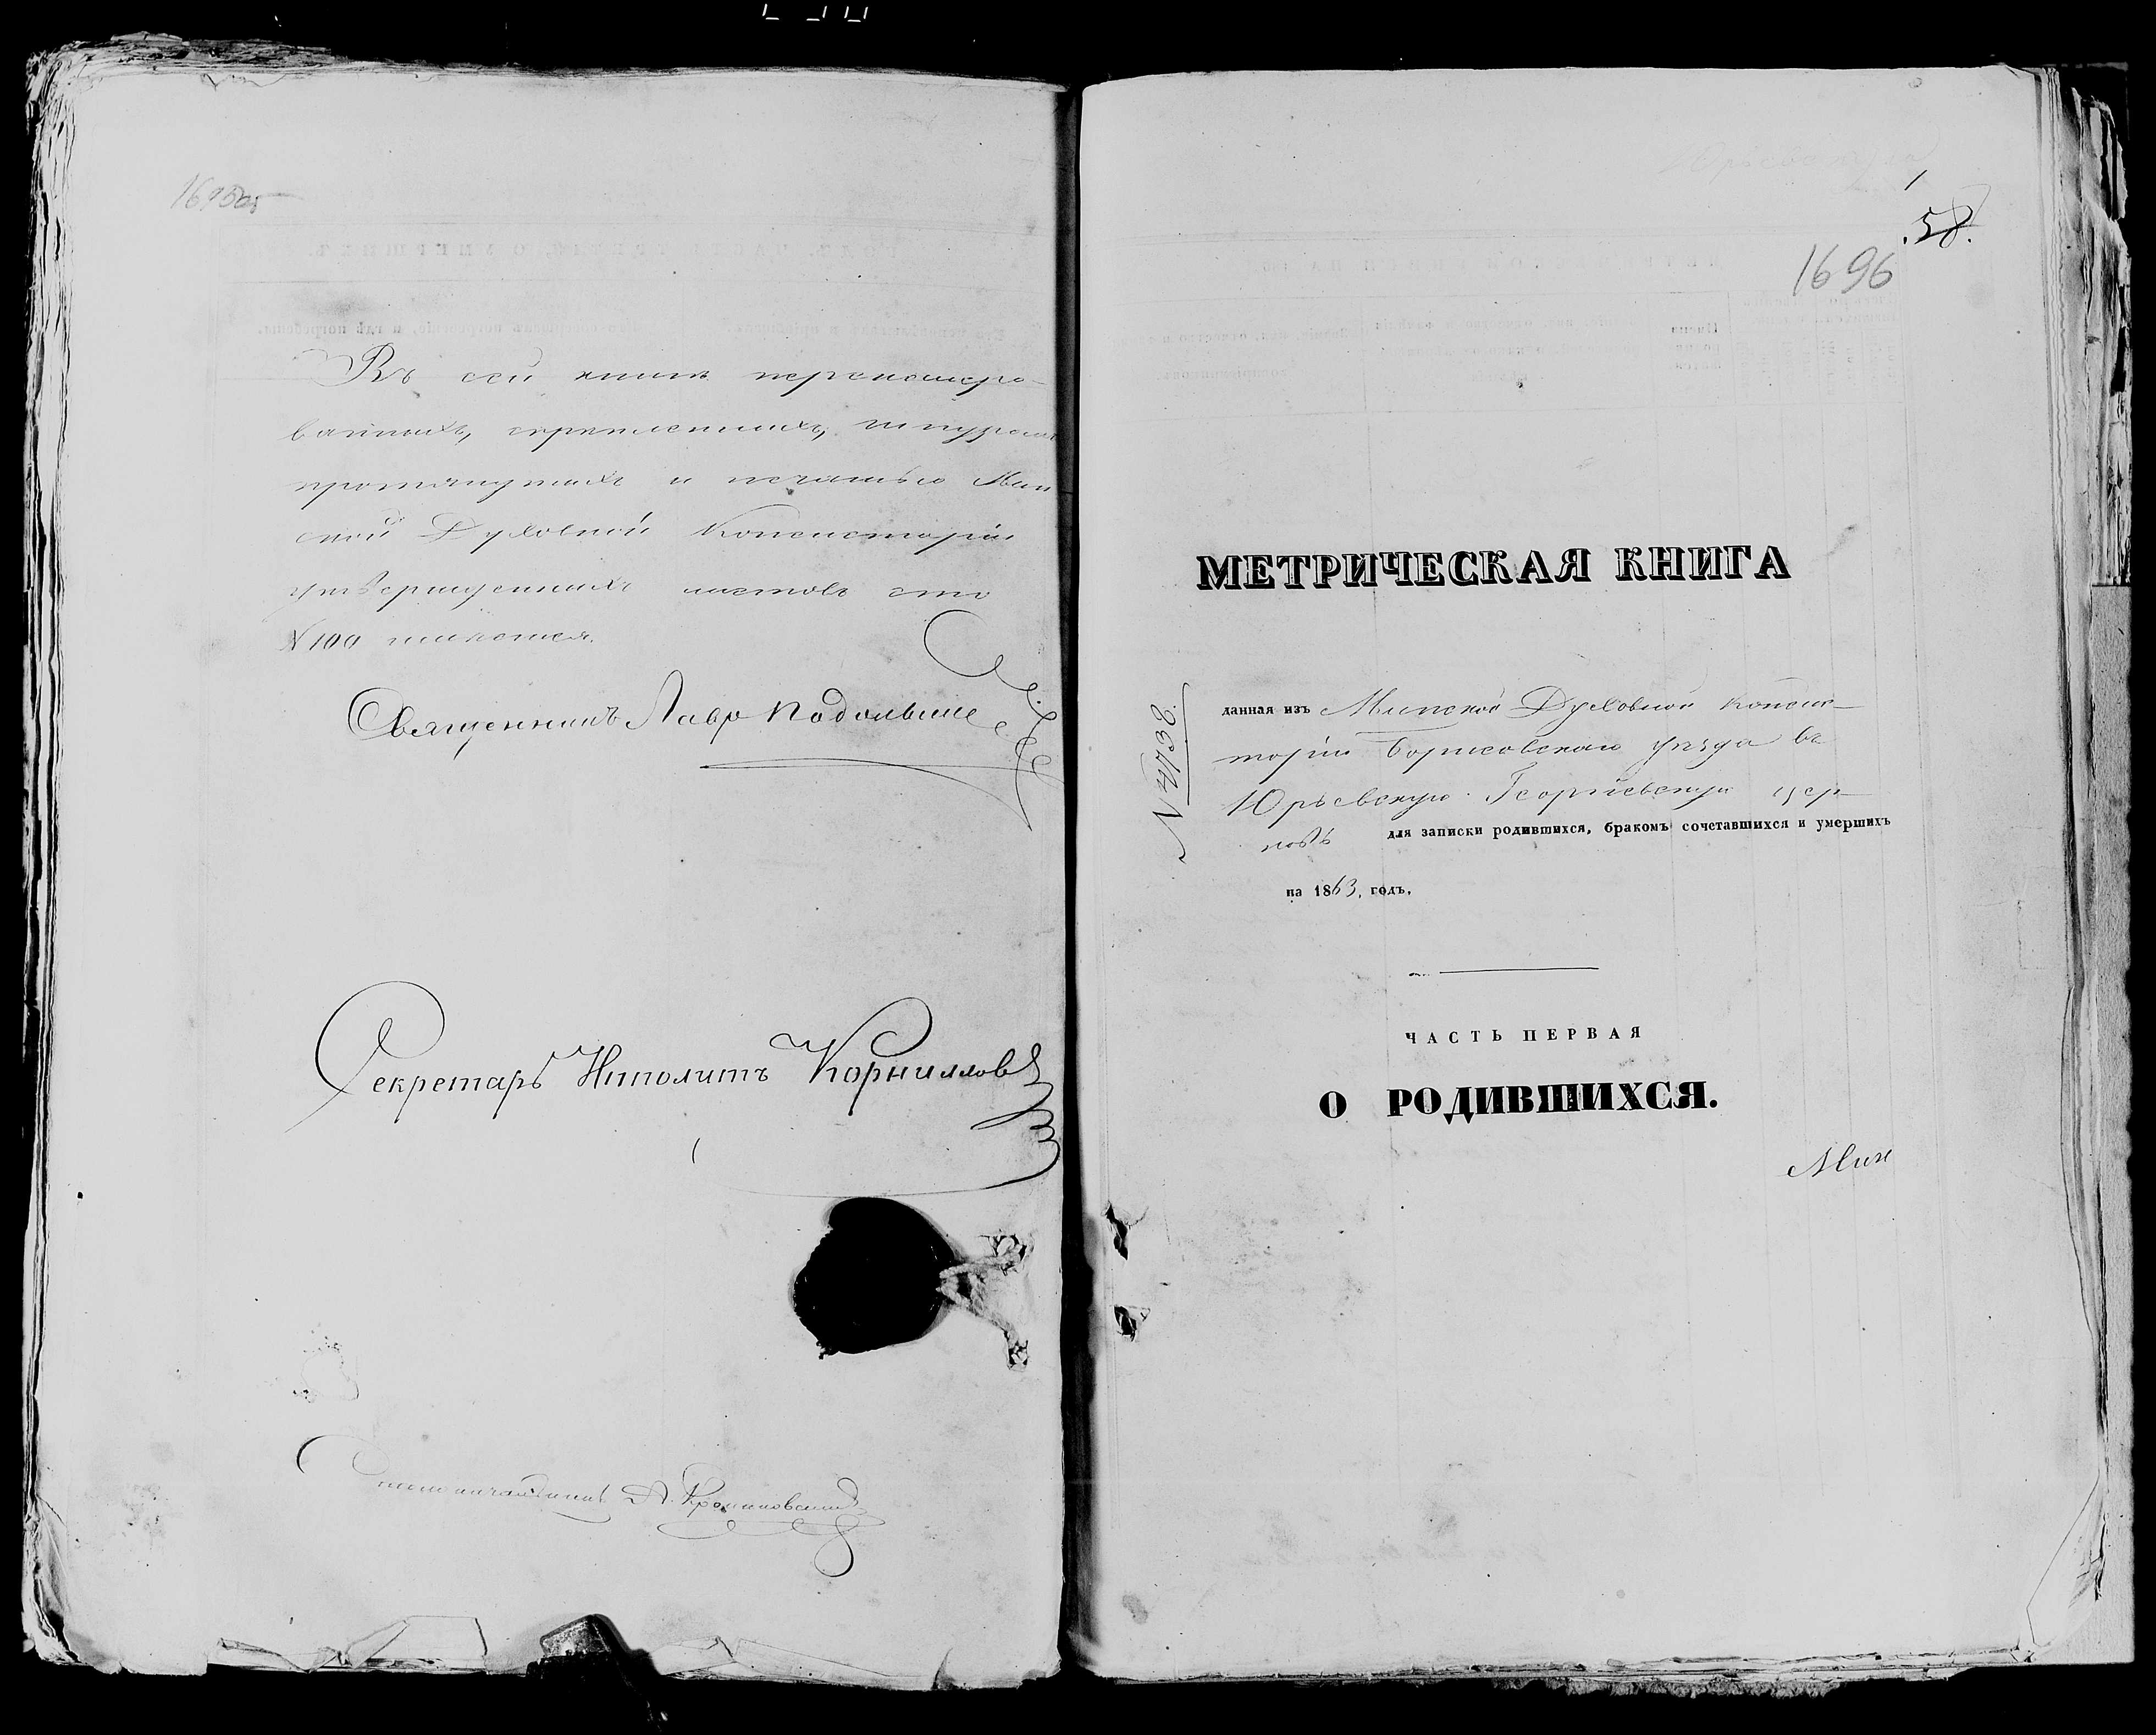 1695об
Въ сей книгѣ перенумеро-
ванныхъ, скрѣпленныхъ, шнуромъ
протянутыхъ и печатью Мин
ской Духовной Консисторіи
утвержденныхъ листовъ сто
№ 100 имѣется.
Священникъ Лавр
Секретарь Иполитъ Корниловъ
Столоначальникъ А.
1
58.
1696
МЕТРИЧЕСКАЯ КНИГА
№ 4738.
данная изъ Минской Духовной Консис-
торіи Борисовскаго уѣзда въ
Юрьевскую Георгіевскую цер-
ковь для записки родившихся, бракомъ сочетавшихся и умершихъ
на 1863, годъ.
ЧАСТЬ ПЕРВАЯ
О РОДИВШИХСЯ.
Мин